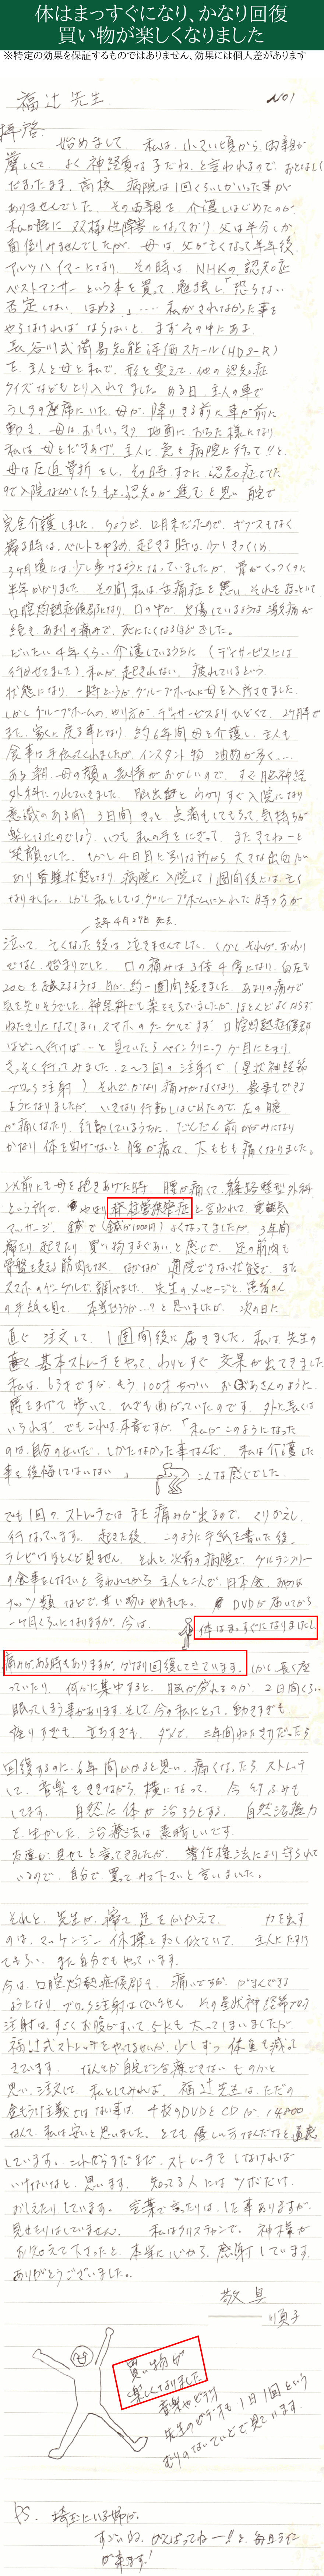 体はまっすぐになり、かなり回復
買い物が楽しくなりました
※特定の効果を保証するものではありません、効果には個人差があります
福辻先生 No1
拝啓
始めまして 私は、小さい頃から、両親が
厳しくて、よく神経質な子だね、と言われるので、おとなしく
だまったまま、高校 病院は1回くらいしかいった事が
ありませんでした。その両親を、介護しはじめたのが
私が既に 双極性障害になっており 父は半分しか
面倒みませんでしたが、母は父が亡くなって半年後
アルツハイマーになり、その時は、NHKの認知症
ベストアンサーという本を買って、勉強し「怒らない
否定しない、ほめる」…… 私がされなかった事を
やらなければならないと、まずその中にある
長谷川式簡易知能評価スケール(HDS-R)
を、主人と母と私で、形を変えて、他の認知症
クイズなどもとり入れてました。ある日、主人の車で
うしろの座席にいた母が、降りる前に車が前に
動き、母はおもいっきり 地面におちた様になり
私は母をだきあげ、主人に、急で病院に行って!!と。
母は圧迫骨折をし、その時すでに、認知症でした
ので入院なんかしたら、もっと認知が進むと思い 自宅で
完全介護しました。ちょうど、12月末だったので、ギプスもなく
寝る時は、ベルトをゆるめ、起きる時は、少しきつくしめ
3ヶ月頃には、少し歩けるようになっていましたが、骨がくっつくまで
半年かかりました。その間、私は、舌痛症を患い それをほっといて
口腔灼熱症候群になり、口の中が、火傷しているような激痛が
続き、あまりの痛みで、死にたくなるほどでした。
だいたい4年くらい介護しているうちに (デイサービスには
行かせてました)、私が、起きれない、疲れているという
状態になり 一時どうか、グループホームに母を入所させました。
しかしグループホームの、やり方が、デイサービスよりひどくて、2ヶ月半で
また、家に、戻る事になり、約6年間母を介護し、主人も
食事は手伝ってくれましたが、インスタント物、油物が多く、…
ある朝、母の顔の表情がおかしいので、すぐ脳神経
外科に、つれていきました。脳出血とわかり すぐ入院になり
意識のある間、3日間 きっと、点滴もしてもらって、気持ちが
楽になったのでしょう。いつも私の手をにぎって、またきてねーと
笑顔でした。しかし4日目に別な所から、大きな出血が
あり昏睡状態となり、病院に入院して1週間後には、亡く
なりました。しかし私としては、グループホームに入れた時の方が
去年4月27日 死去
泣いて、亡くなった後は泣きませんでした。しかし、それが、おわり
ではなく、始まりでした。口の痛みは3倍4倍になり、血圧も
200を超えるような日が、約一週間続きました。あまりの痛みで
気を失いそうでした。神経科でも薬をもらっていましたが ほとんどよくならず
ねたきりになってしまい、スマホのグーグルでまず 口腔灼熱症候群
はどこへ行けば…と 見ていたらペインクリニックが目にとまり
さっそく行ってみました。2〜3回の注射で、(星状神経節
ブロック注射) それで、かなり痛みがなくなり、食事もできる
ようになりましたが、いきなり行動しはじめたので、左の腕
が痛くなったり、行動しているうちに、だんだん前かがみになり
かなり 体を曲げないと 腰が痛くて、太ももも痛くなりました。
以前にも母を抱きあげた時、腰が痛くて、整形外科
という所で、やはり脊柱管狭窄症と言われて、電気
マッサージ、鍼で(鍼が1000円) よくなってましたが 3年間
寝たり 起きたり 買い物するぐらいと感じで、足の筋肉も
骨盤を支える筋肉もなく、なかなか 通院できない状態で、また
スマホのグーグルで調べました。先生のメッセージと、患者さん
の手紙を見て、本当だろうか…?と思いましたが、次の日に
直ぐ 注文して、1週間後に届きました。私は、先生の
基本ストレッチをやって、わりとすぐ 効果が出てきました
私は、63才ですが、もう100才ちかい おばあさんのように
腰をまげて歩いて、ひざも曲がっていたのです。外に長くは
いられず、でもこれは、本音ですが、「私がこのようになった
のは、自分のせいだ、しかたなかった事なんだ 私は介護した
事を後悔してはいない」 こんな感じでした。
でも1回の、ストレッチではまだ 痛みが出るので、くりかえし
行なっています。起きた後、このように手紙を書いた後、
テレビはほとんど見ません。それと以前の病院で、グルテンフリー
の食事をしなさいと言われてから、主人と二人で、日本食、
ナッツ類などで、甘い物はやめました。DVDが届いてから
一ヶ月くらいになりますが、今は、体はまっすぐになりましたし
痛みがある時もありますが、かなり回復してきています。しかし長く座
っていたり、何かに集中すると、脳が疲れるのか、2日間くらい
眠ってしまう事があります。そして今の私にとって、動きすぎも
座りすぎも、立ちすぎも、ダメで、三年間ねたきりだったら
回復するのに、6年間かかると思い、痛くなったら ストレッチ
して、音楽をききながら、横になって、今 竹ふみも
してます。自然に体が治ろうとする、自然治癒力
を生かした、治療法は素晴しいです。
友達が、見せてと言ってきましたが、著作権法により守られて
いるので、自分で、買ってみて下さいと言いました。
それと、先生が、寝て、足をつかかえて、力を出す
のは、マッケンジー体操と少し似ていて、主人にたすけ
てもらい、また自分でもやっています。
今は、口腔灼熱症候群も、痛いですが、がまんできる
ようになり、ブロック注射はしていません。その星状神経節ブロック
注射は、すごくお腹がすいて、5kも太ってしまいましたが
福辻式ストレッチをやってるせいか、少しずつ 体重も減って
きています。なんとか自宅で治療できないものかと
思い、注文して、私としてみれば、福辻先生は、ただの
金もうけ主義ではない事は、4枚のDVDとCDが、14,800
なんて、私は安いと思いました。とても優しい方なんだなと、痛感
しています。これからまだまだ、ストレッチをしなければ
いけないなと、思います。知ってる人には、ツボだけ、
おしえたりしています。言葉で言ったりは、した事ありますが、
見せたりはしていません。私はクリスチャンで、神様が
お与えて下さったと、本当に心から、感謝しています。
ありがとうございました。
敬具
順子
買い物が
楽しくなりました
音楽やピラティ
先生のビデオも 1日1回という
むりのないていどで見ています。
P.S. 埼玉にいる姉が、
すごいね、がんばってねー!!と、毎日ライン
が来ます!